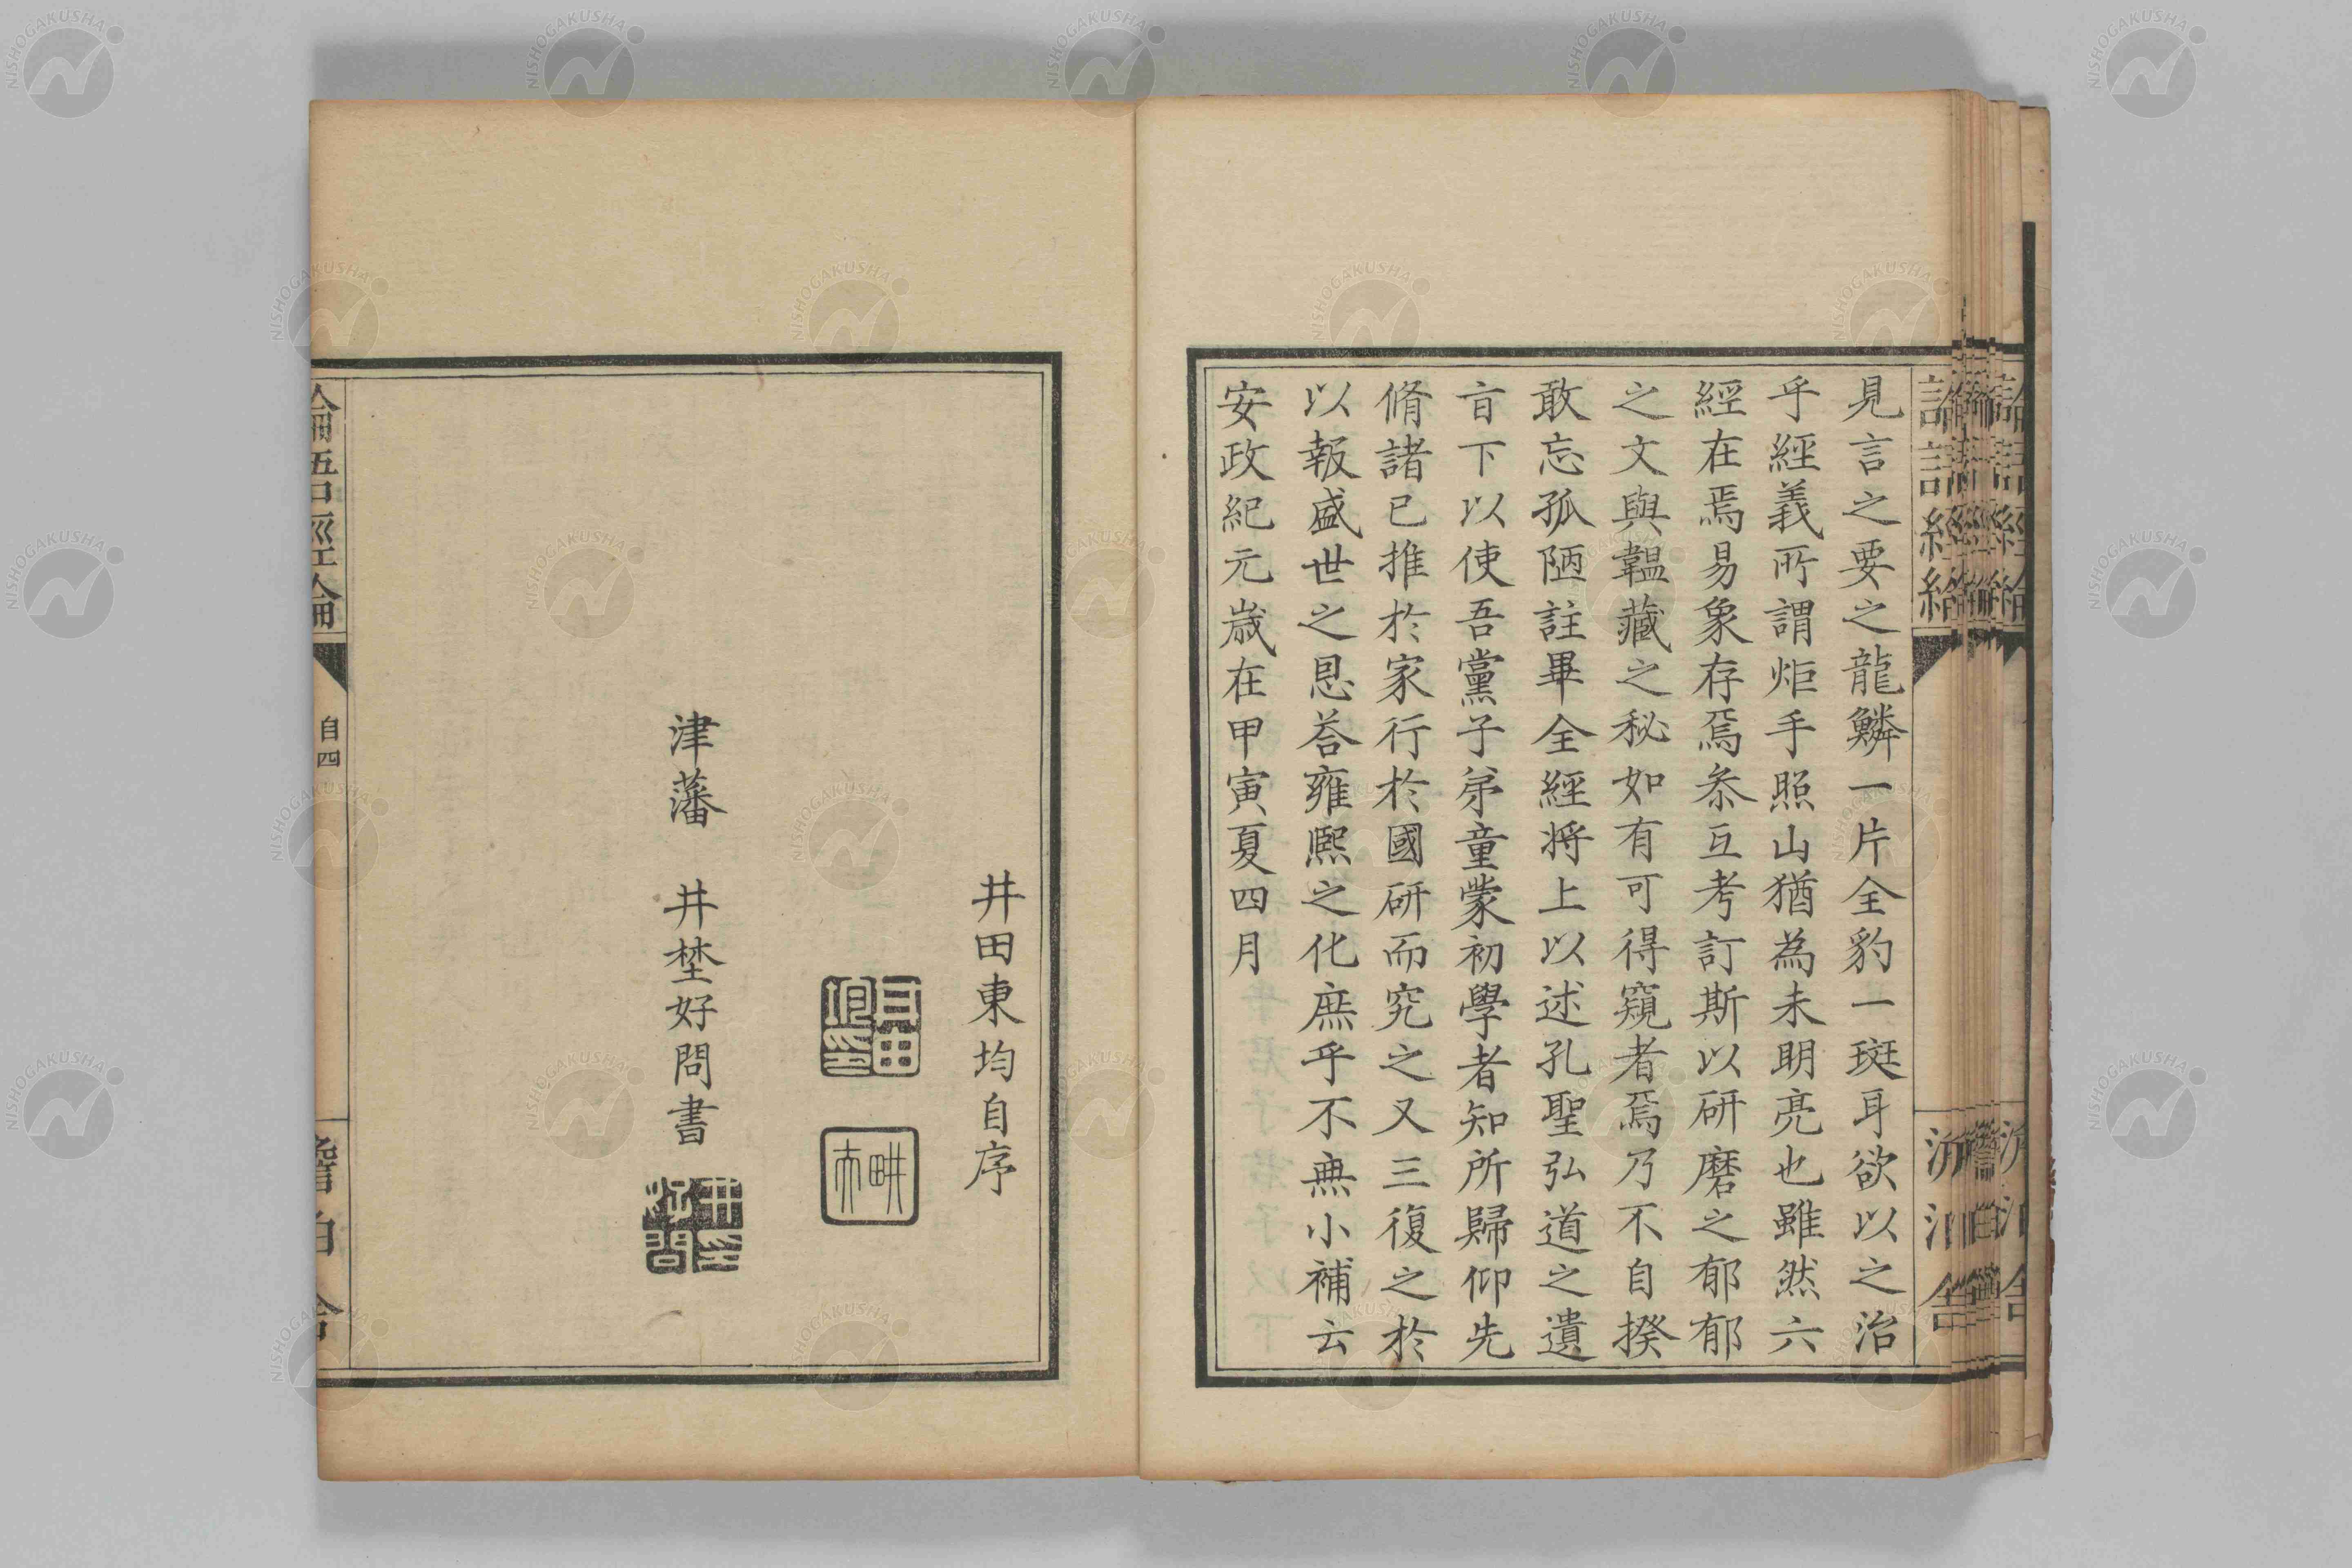 見言之要之龍鱗一片全豹一斑耳欲以之治
乎經義所謂炬手照山猶為未明亮也雖然六
經在焉易象存焉叅互考訂斯以研磨之郁郁
之文與韞藏之秘如有可得窺者焉乃不自揆
敢忘孤陋註畢全經将上以述孔聖弘道之遺
㫖下以使吾黨子弟童蒙初學者知所歸仰先
脩諸已推於家行於國研而究之又三復之於
以報盛世之恩荅雍熙之化庶乎不無小補云
安政紀元歳在甲寅夏四月
井田東均自序
津藩 井埜好問書
論語經綸
自四